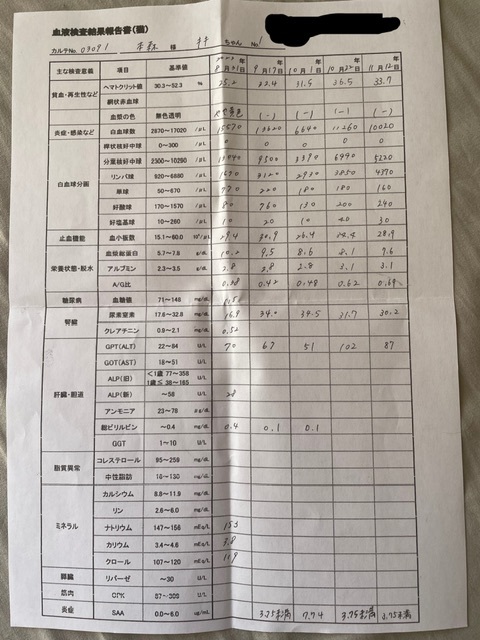 血液検査結果報告書(猫)
カルテNo. 03091 様 ちゃん No.1
主な検査意義 項目 基準値 年8月31日 年9月17日 年10月1日 年10月22日 年11月12日
貧血・再生性など ヘマトクリット値 30.3~52.3 % 25.2 32.4 31.5 36.5 33.7
網状赤血球
血漿の色 無色透明 (-) (-) (-) (-)
炎症・感染など 白血球数 2870~17020 /μL 15570 13620 6640 11260 10020
白血球分画 桿状核好中球 0~300 /μL 0 0 0 0 0
分葉核好中球 2300~10290 /μL 9500 3390 6990 5220
リンパ球 920~6880 /μL 3120 2930 3850 4390
単球 50~670 /μL 220 180 180 160
好酸球 170~1570 /μL 80 760 130 200 240
好塩基球 10~260 /μL 10 20 10 40 30
止血機能 血小板数 15.1~60.0 10⁴/μL 29.4 30.9 26.4 24.4 28.9
栄養状態・脱水 血漿総蛋白 5.7~7.8 g/dL 10.2 9.5 8.6 8.1 7.6
アルブミン 2.3~3.5 g/dL 2.8 2.8 2.8 3.1 3.1
A/G比 0.38 0.42 0.48 0.62 0.69
糖尿病 血糖値 71~148 mg/dL
腎臓 尿素窒素 17.6~32.8 mg/dL 16.9 34.0 34.5 31.7 30.2
クレアチニン 0.9~2.1 mg/dL 0.52
肝臓・胆道 GPT(ALT) 22~84 U/L 70 67 51 102 87
GOT(AST) 18~51 U/L
ALP(旧) <1歳 77~358 1歳≦ 38~165 U/L
ALP(新) ~58 U/L 28
アンモニア 23~78 μg/dL
総ビリルビン ~0.4 mg/dL 0.4 0.1 0.1
GGT 1~10 U/L
脂質異常 コレステロール mg/dL
中性脂肪 mg/dL
ミネラル カルシウム 8.8~11.9 mg/dL
リン 2.6~6.0 mg/dL
ナトリウム 147~156 mEq/L 155
カリウム 3.4~4.6 mEq/L 3.8
クロール 107~120 mEq/L 119
膵臓 リパーゼ ~30 U/L
筋肉 CPK U/L
炎症 SAA 0.0~6.0 ug/mL 3.75未満 7.74 3.75未満 3.75未満